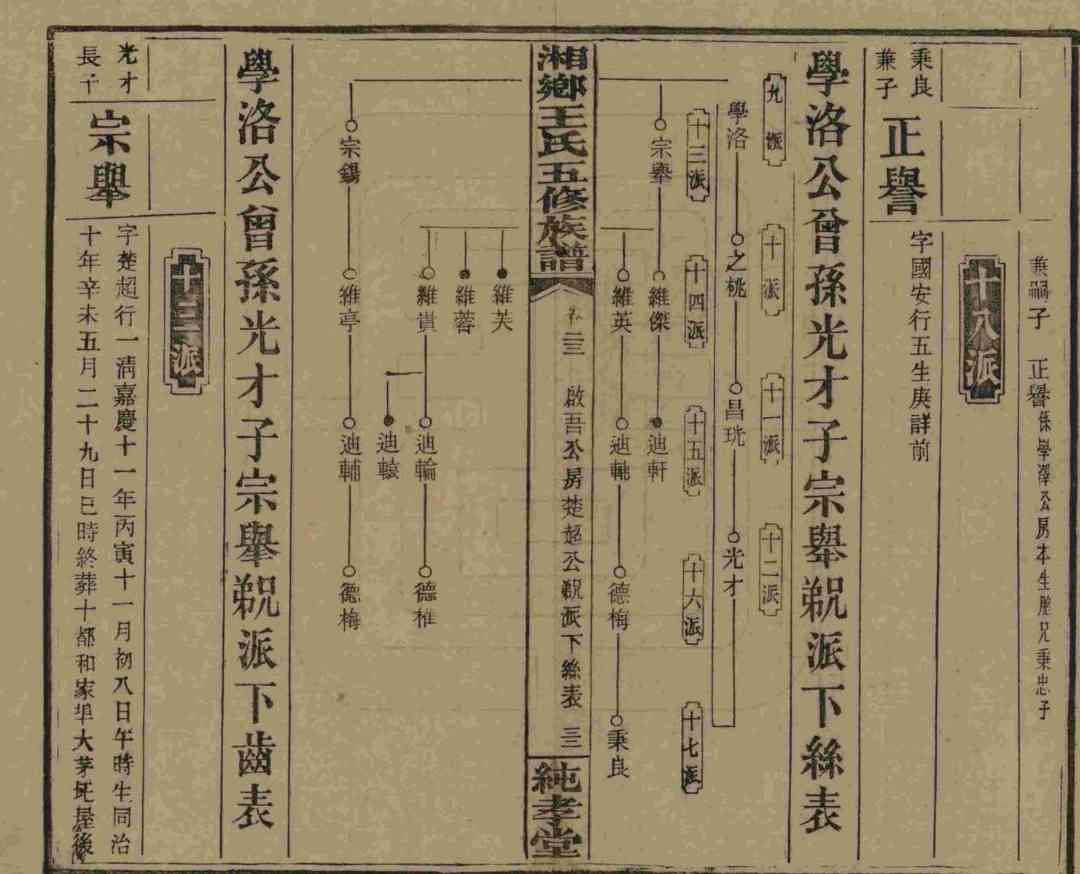 兼嗣子　正譽係學澤公房本生胞兄秉忠子
十八派
秉良
兼子
正譽
字國安行五生庚詳前
學洛公曾孫光才子宗舉派下絲表
九派
十派
十一派
十二派
學洛
之桃
昌珖
光才
十三派
十四派
十五派
十六派
十七派
宗舉
維傑
迪軒
維英
迪軏
德梅
秉良
湘鄉王氏五修族譜
卷二三　啟吾公房楚超公派下絲表　三
純孝堂
維芙
維蓉
維貴
迪輪
德椎
迪轅
宗錫
維亭
迪輔
德梅
學洛公曾孫光才子宗舉派下齒表
十三派
光才
長子
宗舉
字楚超行一清嘉慶十一年丙寅十一月初八日午時生同治
十年辛未五月二十九日巳時終葬十都和家埠大茅坵屋後